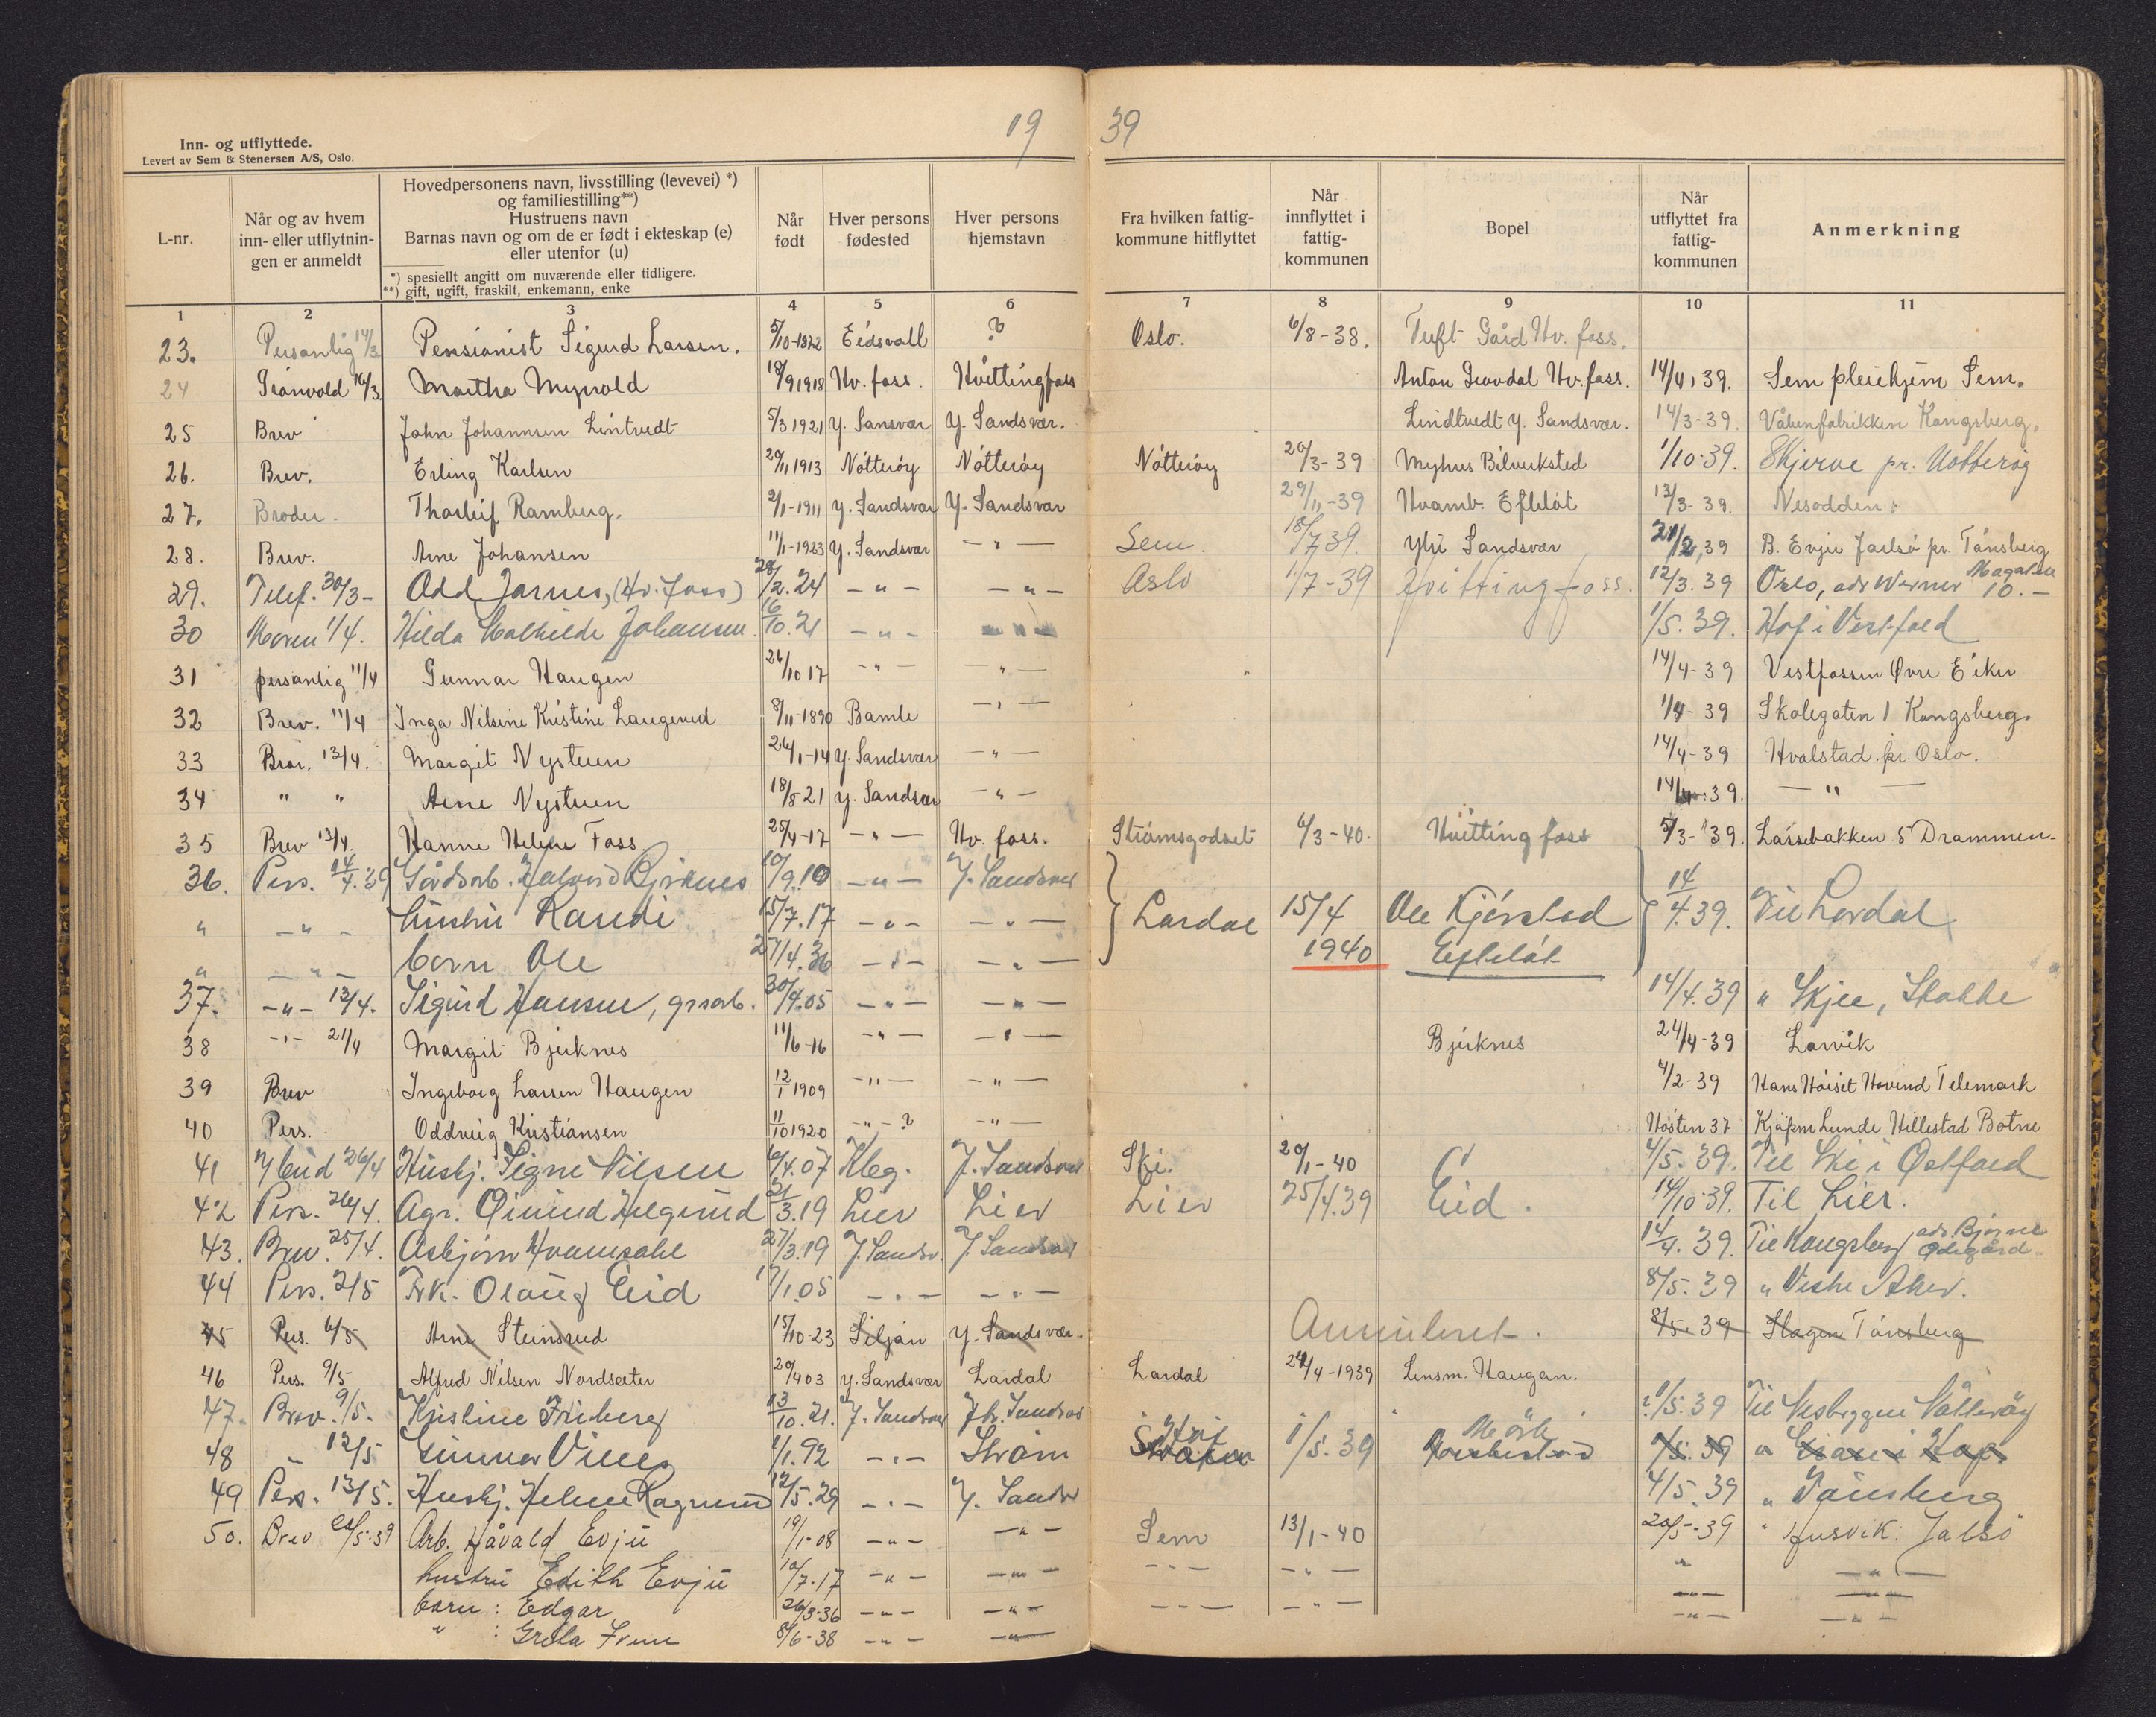 19 39
Inn- og utflyttede.
Levert av Sem & Stenersen A/S, Oslo.
L-nr. | Når og av hvem inn- eller utflytnin- gen er anmeldt | Hovedpersonens navn, livsstilling (levevei) *) og familiestilling**) Hustruens navn Barnas navn og om de er født i ekteskap (e) eller utenfor (u) *) spesiellt angitt om nuværende eller tidligere. **) gift, ugift, fraskilt, enkemann, enke | Når født | Hver persons fødested | Hver persons hjemstavn | Fra hvilken fattig- kommune hitflyttet | Når innflyttet i fattig- kommunen | Bopel | Når utflyttet fra fattig- kommunen | Anmerkning
1 | 2 | 3 | 4 | 5 | 6 | 7 | 8 | 9 | 10 | 11
23. Personlig 14/3 Pensionist Sigurd Larsen. 5/10-1822 Eidsvall ? Oslo. 6/8-38. Tuft Gård Hv. foss.
24 16/3 Martha Mynold 18/9 1918 Hv. foss. Hvittingfoss Anton Hv. foss. 14/4, 39. Sem pleiehjem Sem.
25 Brev John Johannsen Lintvedt 5/3 1921 Y. Sansvær Y. Sandsvær. Lindtvedt Y. Sandsvær. 14/3-39. Våbenfabrikken Kongsberg.
26. Brev. Erling Karlsen 29/11 1913 Nøtterøy Nøtterøy Nøtterøy 20/3-39 Myhus Bilverksted 1/10-39. Skjerve pr. Nøtterøy
27. Broder. Thorleif Ramberg. 2/1-1911 Y. Sandsvær Y. Sandsvær 29/11-39 Hvamb. Efteløt 13/3-39. Nesodden.
28. Brev. Arne Johansen 11/1-1923 Y. Sandsvær - " - Sem. 18/7 39. Ytre Sandsvær 21/2, 39 B. Evju Jarlsø pr. Tønsberg
29. Telef. 30/3- Odd Jarnes, (Hv. foss) 28/2. 24 - " - - " - Oslo 1/7-39 Hvittingfoss. 12/3. 39 Oslo, adr Werner 10.-
30 Moren 1/4. Hilda Mathilde Johansen. 16/10. 21 - " - - " - 1/5. 39. Hof i Vestfold
31 personlig 11/4 Gunnar Haugen 26/10 17 - " - - " - 14/4-39 Vestfossen Øvre Eiker
32 Brev. 11/4 Inga Nilsine Kristine Laugerud 8/11-1890 Bamle - " - 1/4-39 Skolegaten 1 Kongsberg.
33 Bror. 13/4. Margit Nystuen 26/1-14 Y. Sandsvær - " - 14/4-39 Hvalstad pr. Oslo.
34 " " Arne Nystuen 18/8-21 Y. Sandsvær - " - 14/4.39. - " -
35 Brev 13/4. Hanne Helene Foss 25/4-17 - " - Hv. foss. Strømsgodset 6/3-40. Hvittingfoss 5/3-39. Lassebakken 5 Drammen-
36. Pers. 14/4. 39 Gårdsarb. Halvord Bjerknes 10/9. 10 - " - Y. Sandsvær 14/4. 39. Til Lardal
" - " - hustru Randi 15/7. 17 - " - - " - Lardal 15/4 Ole Kjørstad
" - " - barn Ole 27/4. 36 - " - - " - 1940 Efteløt
37. - " - 13/4. Sigurd Hansen, grsarb. 30/4. 05 - " - - " - 14/4. 39 " Skjee, Stokke
38 - " - 21/4 Margit Bjerknes 11/6-16 - " - - " - Bjerknes 24/4-39 Larvik
39 Brev Ingeborg Larsen Haugen 12/1 1909 - " - - " - 4/2-39 Hans Høiset Hovind Telemark
40 Pers. Oddveig Kristiansen 11/10 1920 - " - ? - " - Høsten 37 Kjøpm Lunde Hillestad Botne
41 26/4 Husbj. Signe Nilsen 6/4. 07 Kbg. Y. Sandsvær Ski. 20/1-40 4/5. 39. Til Ski i Østfold
42 Pers. 26/4. Agr. Øivind Helgerud 21/3. 19 Lier Lier Lier 25/4. 39 Eid. 14/10-39. Til Lier.
43. Brev. 25/4. Asbjørn Hvamsahl 27/3. 19 Y. Sandsv. Y. Sandsvær 14/4. 39. Til Kongsberg adr. Bjarne Ødegård
44 Pers. 2/5 Frk. Olaug Eid 1/1. 05 - " - - " - 8/5. 39 " Vestre Aker.
45 Pers. 6/5 Arne Steinsrud 15/10-23 Siljan Y. Sandsvær. Annuleret. 8/5. 39 Slagen Tønsberg
46 Pers. 9/5 Alfred Nilsen Nordseter 20/4 03 Y. Sandsvær Lardal Lardal 24/4-1939 Lensm. Haugan.
47. Brev. 9/5. Kristine Friberg 13/10. 21. Y. Sandsvær Ytr. Sandsvær 1/5. 39 Til Nesbryggen Nøtterøy
48 " 12/5 Gunnar 1/1. 92 - " - Strøm 1/5. 39 1/5. 39 "
49 Pers. 13/5. Husbj. Helene Ragnrud 12/5. 29 - " - Y. Sandsv 4/5. 39 " Tønsberg
50. Brev 22/5-39 Arb. Håvald Evju 19/1-08 - " - - " - Sem 13/1-40 20/5-39 " Husvik. Jalsø
hustru Edith Evju 10/7. 17 - " - - " - - " - - " - " - " -
barn: Edgar 26/3-36 - " - - " - - " - - " - - " - - " -
" : Greta 8/6-38 - " - - " - - " - - " -